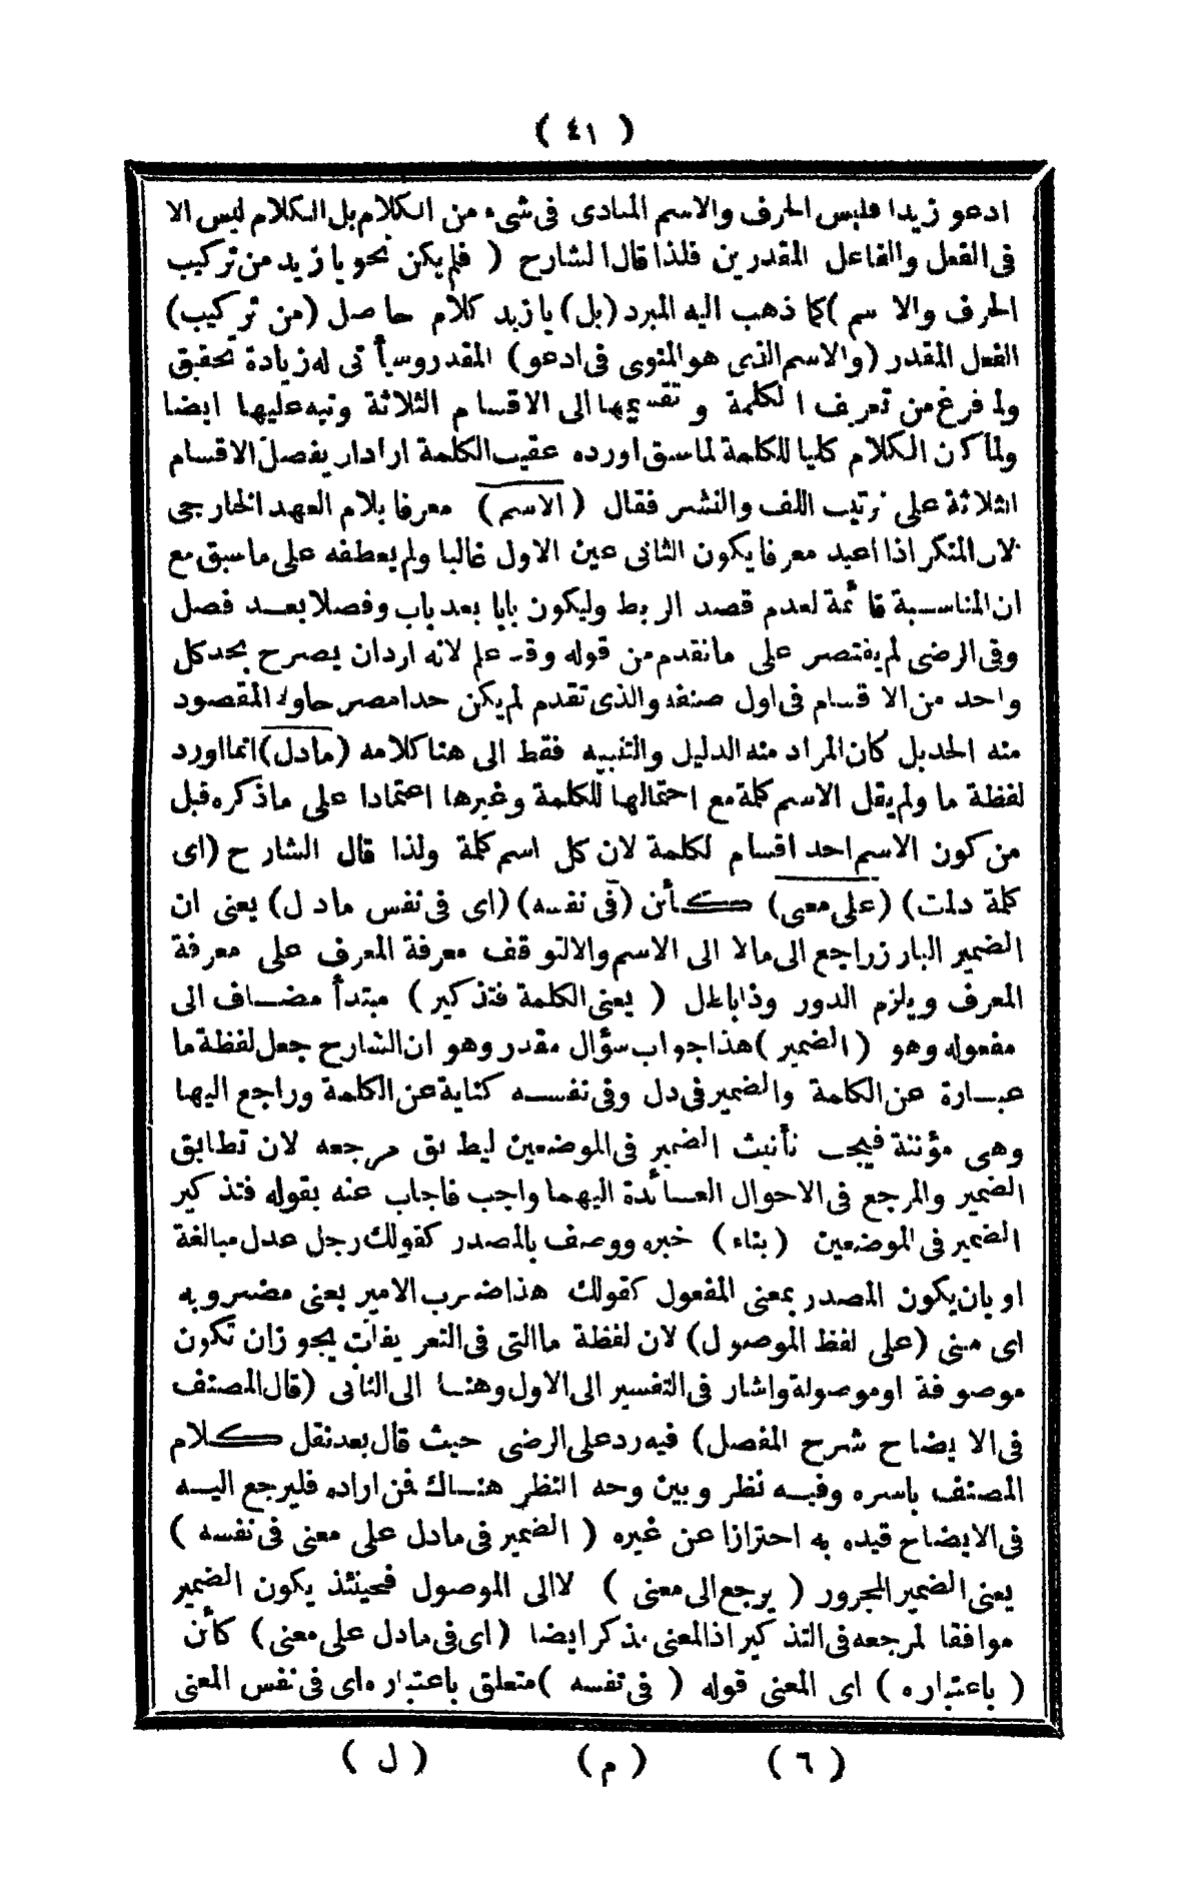 ( ٤١ )
ادعو زيدا فليس الحرف والاسم المنادى فى شىء من الكلام بل الكلام ليس الا
فى الفعل والفاعل المقدرين فلذا قال الشارح ( فلم يكن نحو يا زيد من تركيب
الحرف والا سم ) كما ذهب اليه المبرد ( بل ) يا زيد كلام حاصل ( من تركيب )
الفعل المقدر ( والاسم الذى هو المنوى فى ادعو ) المقدر وسيأ تى له زيادة تحقيق
ولما فرغ من تعريف الكلمة و تقسيمها الى الاقسام الثلاثة ونبه عليها ايضا
ولما كان الكلام كليا للكلمة لما سبق اورده عقيب الكلمة اراد ان يفصل الاقسام
الثلاثة على ترتيب اللف والنشر فقال ( الاسم ) معرفا بلام العهد الخارجى
لان المنكر اذا اعيد معرفا يكون الثانى عين الاول غالبا ولم يعطفه على ما سبق مع
ان المناسبة قا ئمة لعدم قصد الربط وليكون بابا بعد باب وفصلا بعد فصل
وفى الرضى لم يقتصر على ما تقدم من قوله وقد علم لانه اراد ان يصرح بحد كل
واحد من الا قسام فى اول صنفه والذى تقدم لم يكن حدا مصرحا ولا المقصود
منه الحد بل كان المراد منه الدليل والتنبيه فقط الى هنا كلامه ( مادل ) انما اورد
لفظة ما ولم يقل الاسم كلمة مع احتمالها للكلمة وغيرها اعتمادا على ما ذكره قبل
من كون الاسم احد اقسام لكلمة لان كل اسم كلمة ولذا قال الشارح ( اى
كلمة دلت ) ( على معنى ) كـــأئن ( فى نفسه ) ( اى فى نفس مادل ) يعنى ان
الضمير البارز راجع الى ما لا الى الاسم والا لتو قف معرفة المعرف على معرفة
المعرف ويلزم الدور وذا باطل ( يعنى الكلمة فتذكير ) مبتدأ مضاف الى
مفعوله وهو ( الضمير ) هذا جواب سؤال مقدر وهو ان الشارح جعل لفظة ما
عبارة عن الكلمة والضمير فى دل وفى نفسه كناية عن الكلمة وراجع اليها
وهى مؤنثة فيجب تأنيث الضمير فى الموضعين ليطابق مرجعه لان تطابق
الضمير والمرجع فى الاحوال العائدة اليهما واجب فاجاب عنه بقوله فتذ كير
الضمير فى الموضعين ( بناء ) خبره ووصف بالمصدر كقولك رجل عدل مبالغة
او بان يكون المصدر بمعنى المفعول كقولك هذا ضرب الامير يعنى مضروبه
اى مبنى ( على لفظ الموصول ) لان لفظة ما التى فى التعر يفات يجو زان تكون
موصو فة او موصولة واشار فى التفسير الى الاول وهنا الى الثانى ( قال المصنف
فى الا يضاح شرح المفصل ) فيه رد على الرضى حيث قال بعد نقل كـــلام
المصنف باسره وفيه نظر وبين وجه النظر هناك فمن اراده فليرجع اليه
فى الايضاح قيده به احترازا عن غيره ( الضمير فى مادل على معنى فى نفسه )
يعنى الضمير المجرور ( يرجع الى معنى ) لا الى الموصول فحينئذ يكون الضمير
موافقا لمرجعه فى التذ كير اذ المعنى مذ كر ايضا ( اى فى مادل على معنى ) كأن
( باعتباره ) اى المعنى قوله ( فى نفسه ) متعلق باعتباره اى فى نفس المعنى
( ٦ ) ( م ) ( ل )